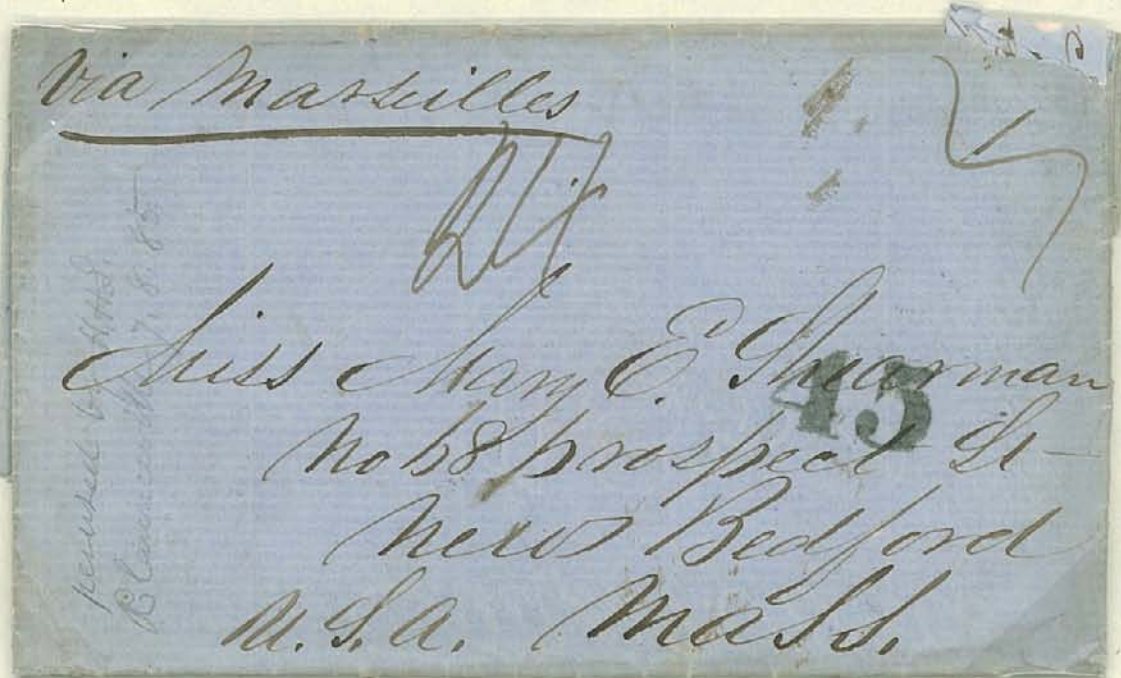 Via Marseilles
Miss Mary E. Shearman
45
No 68 prospect St
New Bedford
U.S.A. Mass.
perused by